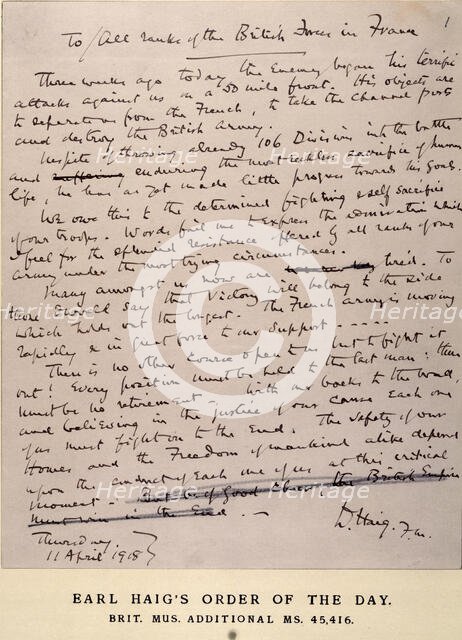 1
To/All ranks of the British Forces in France
Three weeks ago today the Enemy began his terrific
attacks against us on a 50 mile front. His objects are
to separate us from the French, to take the Channel ports
and destroy the British Army.
Inspite of throwing already 106 Divisions into the battle
and suffering enduring the most reckless sacrifice of human
life, he has as yet made little progress towards his goals.
We owe this to the determined fighting & self sacrifice
of our troops. Words fail me to Express the admiration which
I feel for the splendid resistance offered by all ranks of our
Army under the most trying circumstances.
Many amongst us now are tired. To
those I would say that Victory will belong to the side
which holds out the longest. The French Army is moving
rapidly & in great force to our support.
There is no other course open to us but to fight it
out! Every position must be held to the last man: there
must be no retirement. With our backs to the wall,
and believing in the justice of our cause Each one
of us must fight on to the End. The Safety of our
Homes and the Freedom of mankind alike depend
upon the conduct of Each one of us at this critical
moment. Be of Good cheer, the British Empire
must win in the End.
D. Haig. F.M.
Thursday
11 April 1918
Heritage
Heritage
Heritage
Heritage
Heritage
Heritage
EARL HAIG'S ORDER OF THE DAY.
BRIT. MUS. ADDITIONAL MS. 45,416.